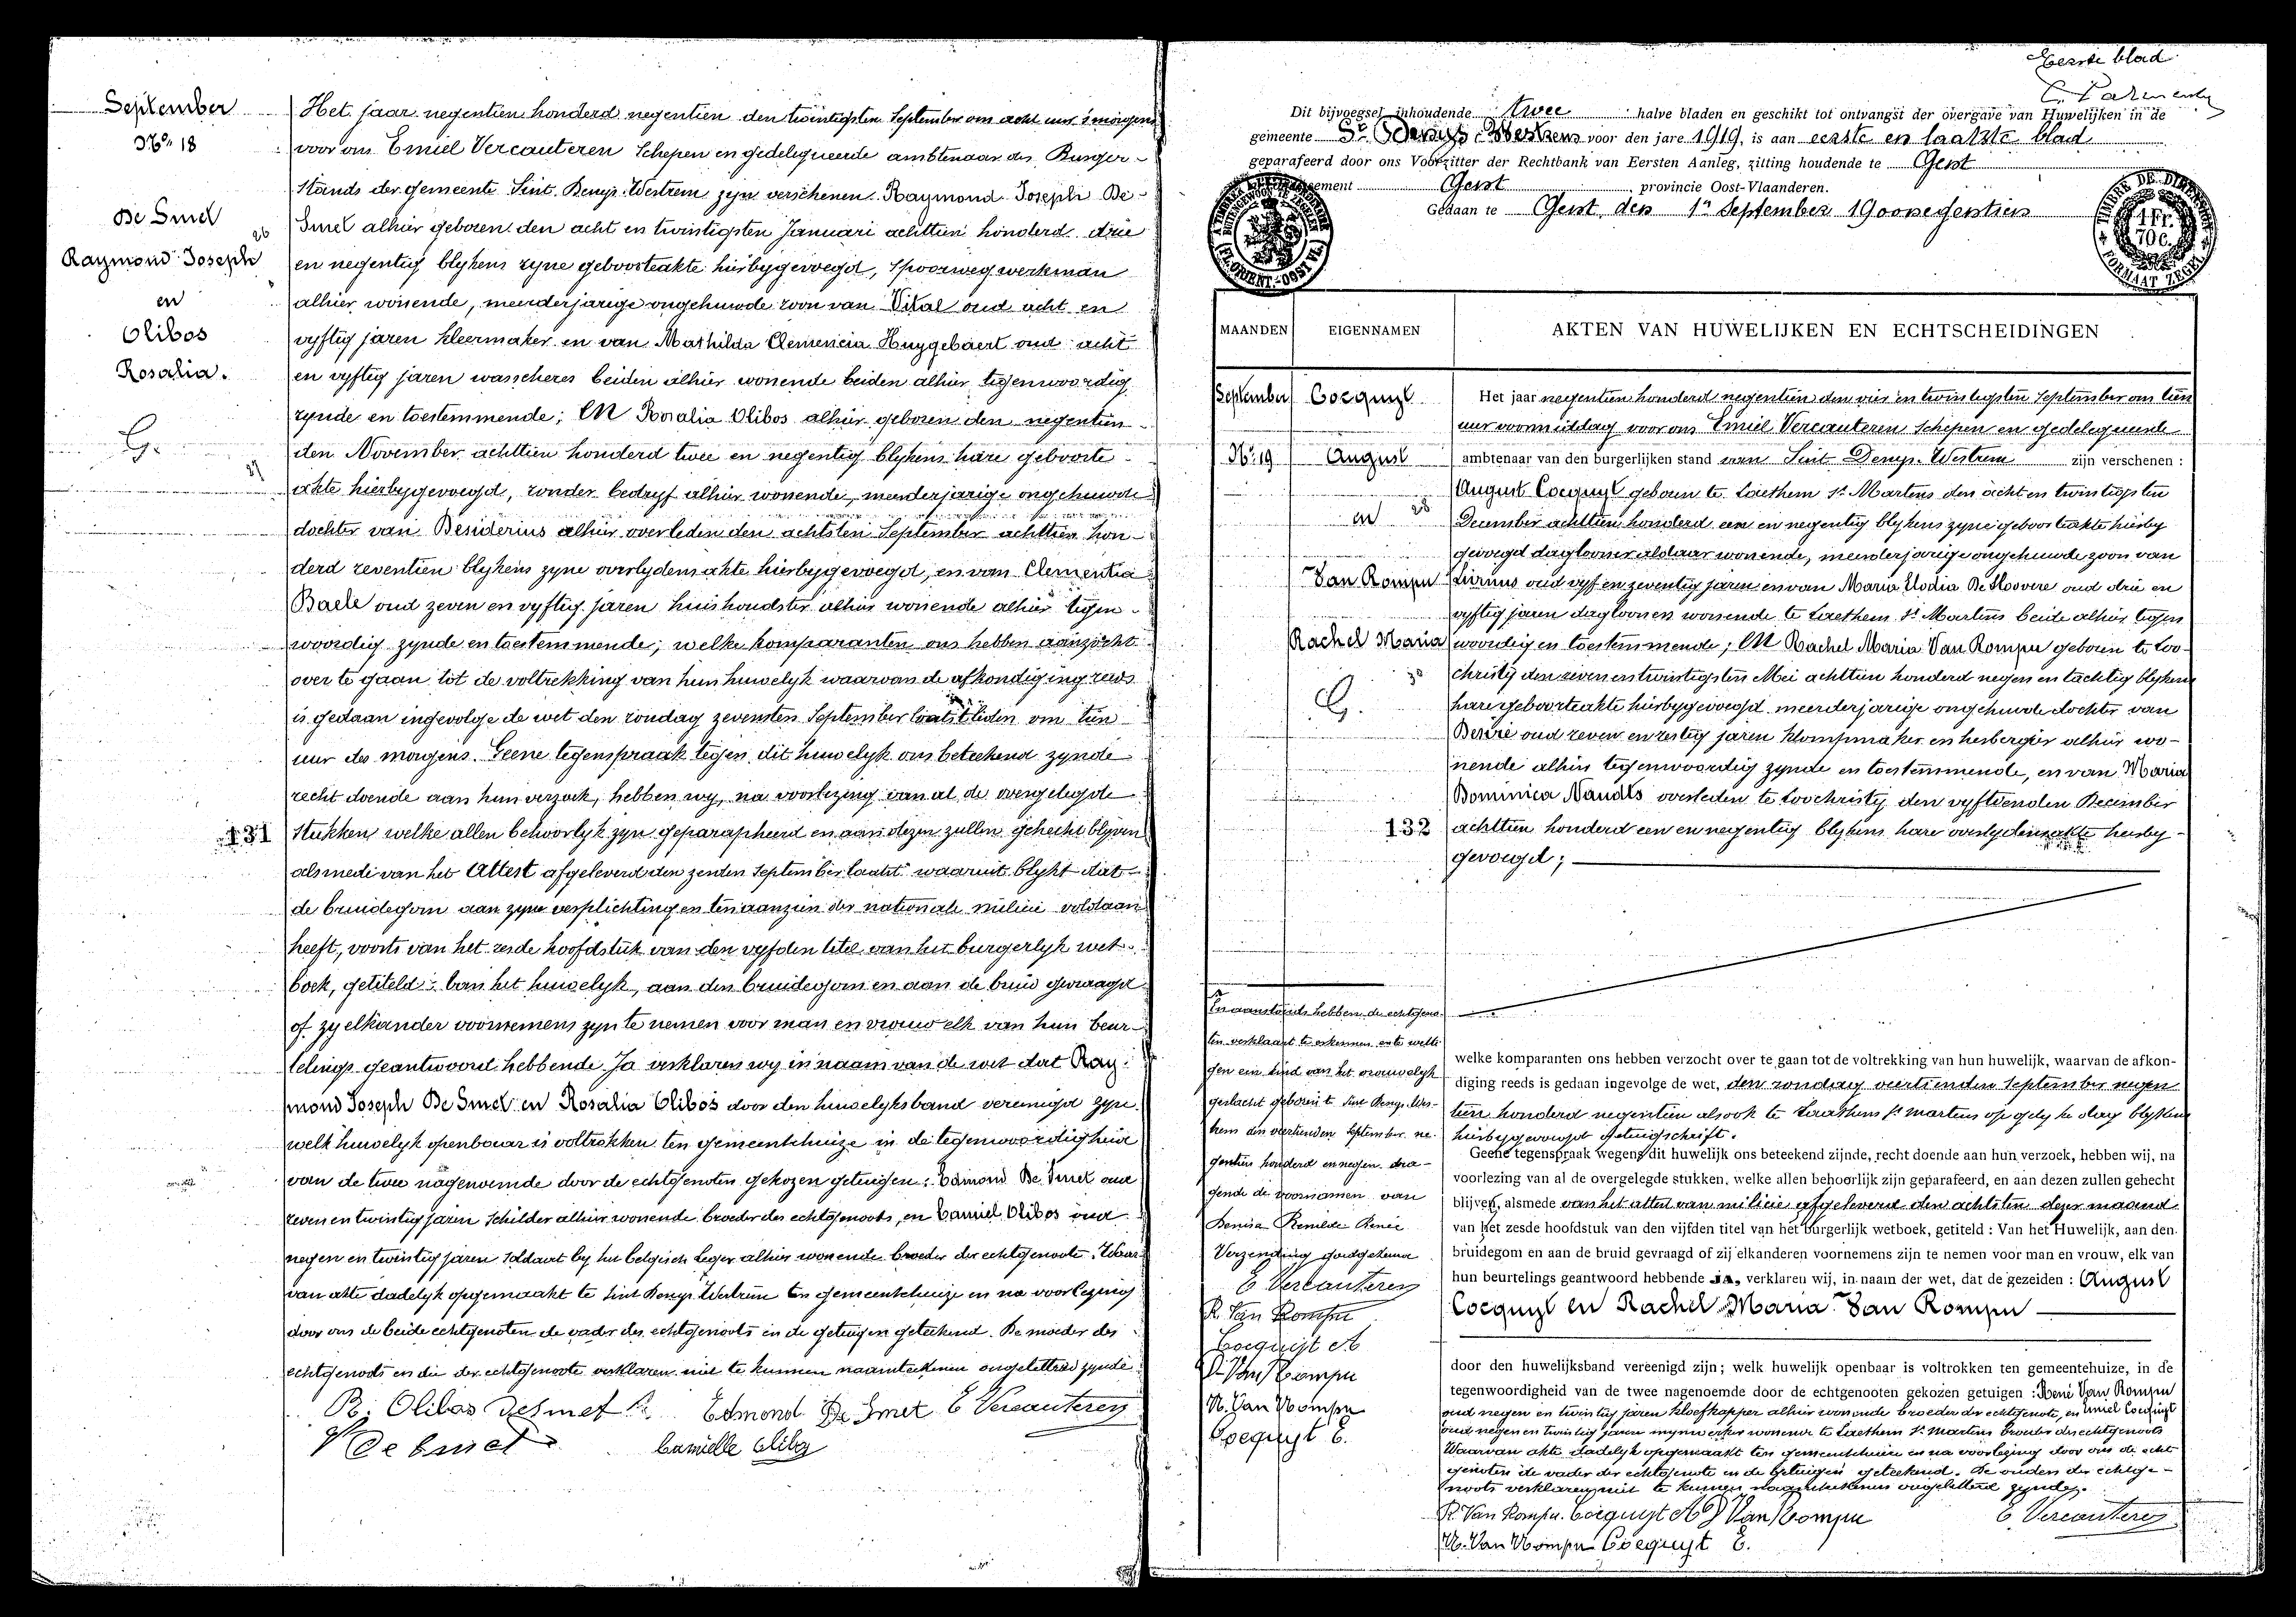 September
No 18
De Smet
Raymond Joseph
en
Olibos
Rosalia.
G.
131
Het jaar negentien honderd negentien den twintigsten September om acht uur 's morgens
voor ons Emiel Vercauteren Schepen en gedelegueerde ambtenaar des Burger-
stands der gemeente Sint Denys-Westrem zyn verschenen Raymond Joseph De
26 Smet alhier geboren den acht en twintigsten Januari achttien honderd drie
en negentig blykens zyne geboorteakte hierbygevoegd, spoorwegwerkman
alhier wonende, meerderjarige ongehuwde zoon van Vital oud acht en
vyftig jaren kleermaker en van Mathilda Clemencia Huygebaert oud acht
en vyftig jaren wasscheres beiden alhier wonende beiden alhier tegenwoordig
zynde en toestemmende; En Rosalia Olibos alhier geboren den negentien
den November achttien honderd twee en negentig blykens hare geboorte
akte hierbygevoegd, zonder bedryf alhier wonende, meerderjarige ongehuwde
dochter van Desiderius alhier overleden den achtsten September achttien hon-
derd zeventien blykens zyne overlydensakte hierbygevoegd, en van Clementia
Baele oud zeven en vyftig jaren huishoudster alhier wonende alhier tegen-
woordig zynde en toestemmende; welke komparanten ons hebben aanzocht
over te gaan tot de voltrekking van hun huwelyk waarvan de afkondiging reeds
is gedaan ingevolge de wet den zondag zevensten September laatstleden om tien
uur des morgens. Geene tegenspraak tegen dit huwelyk ons beteekend zynde
recht doende aan hun verzoek, hebben wy, na voorlezing van al de overgelegde
stukken welke allen behoorlyk zyn geparapheerd en aan dezen zullen gehecht blyven
alsmede van het Attest afgeleverd den zesden September laatst waaruit blykt dat
de bruidegom aan zyne verplichtingen ten aanzien der nationale milicie voldaan
heeft, voorts van het zesde hoofdstuk van den vyfden titel van het burgerlyk wet-
boek, getiteld: van het huwelyk, aan den bruidegom en aan de bruid gevraagd
of zy elkander voornemens zyn te nemen voor man en vrouw elk van hun beur-
telings geantwoord hebbende Ja verklaren wy in naam van de wet dat Ray-
mond Joseph De Smet en Rosalia Olibos door den huwelyksband vereenigd zyn
welk huwelyk openbaar is voltrokken ten gemeentehuize in de tegenwoordigheid
van de twee nagenoemde door de echtgenoten gekozen getuigen: Edmond De Smet oud
zeven en twintig jaren schilder alhier wonende broeder des echtgenoots, en Camiel Olibos oud
negen en twintig jaren soldaat by het belgisch leger alhier wonende broeder der echtgenoote. Waar-
van akte dadelyk opgemaakt te Sint Denys-Westrem ten gemeentehuize en na voorlezing
door ons de beide echtgenoten de vader des echtgenoots en de getuigen geteekend. De moeder des
echtgenoots en die der echtgenoote verklaren niet te kunnen naamteekenen ongeletterd zynde.
R. Olibos Desmet R. Edmond De Smet E Vercauteren
V De Smet Camielle Olibos
Eerste blad
Dit bijvoegsel inhoudende twee halve bladen en geschikt tot ontvangst der overgave van Huwelijken in de
gemeente St Denys-Westrem voor den jare 1919, is aan eerste en laatste blad
geparafeerd door ons Voorzitter der Rechtbank van Eersten Aanleg, zitting houdende te Gent
Gent, provincie Oost-Vlaanderen.
Gedaan te Gent, den 1n September 1900negentien
TIMBRE DE DIMENSION
1 Fr. 70 C.
FORMAAT ZEGEL
MAANDEN
EIGENNAMEN
AKTEN VAN HUWELIJKEN EN ECHTSCHEIDINGEN
September
No 19
Coequyt
August
en
Van Rompu
Rachel Maria
G.
132
Het jaar negentien honderd negentien den vier en twintigsten September om tien
uur voormiddag voor ons Emiel Vercauteren Schepen en gedelegueerde
ambtenaar van den burgerlijken stand van Sint Denys-Westrem zijn verschenen:
August Coequyt geboren te Laethem St Martens den acht en twintigsten
December achttien honderd een en negentig blykens zyne geboorteakte hierby
gevoegd daglooner aldaar wonende, meerderjarige ongehuwde zoon van
Livinus oud vyf en zeventig jaren en van Maria Elodia De Hoovere oud drie en
vyftig jaren dagloonen wonende te Laethem St Martens beide alhier tegen
woordig en toestemmende; En Rachel Maria Van Rompu geboren te Loo-
christy den zeven en twintigsten Mei achttien honderd negen en tachtig blykens
hare geboorteakte hierbygevoegd meerderjarige ongehuwde dochter van
Desiré oud zeven en zestig jaren klompmaker en herbergier alhier wo-
nende alhier tegenwoordig zynde en toestemmende, en van Maria
Dominica Naudts overleden te Loochristy den vyftienden December
achttien honderd een en negentig blykens hare overlydensakte hierby-
gevoegd;
welke komparanten ons hebben verzocht over te gaan tot de voltrekking van hun huwelijk, waarvan de afkon-
diging reeds is gedaan ingevolge de wet, den zondag veertienden September negen
tien honderd negentien alsook te Laethem St Martens op gelyke dag blykens
hierbygevoegd getuigschrift.
Geene tegenspraak wegens dit huwelijk ons beteekend zijnde, recht doende aan hun verzoek, hebben wij, na
voorlezing van al de overgelegde stukken, welke allen behoorlijk zijn geparafeerd, en aan dezen zullen gehecht
blijven, alsmede van het attest van milicie afgeleverd den achtsten dezer maand
van het zesde hoofdstuk van den vijfden titel van het burgerlijk wetboek, getiteld: Van het Huwelijk, aan den
bruidegom en aan de bruid gevraagd of zij elkanderen voornemens zijn te nemen voor man en vrouw, elk van
hun beurtelings geantwoord hebbende Ja, verklaren wij, in naam der wet, dat de gezeiden: August
Coequyt en Rachel Maria Van Rompu
door den huwelijksband vereenigd zijn; welk huwelijk openbaar is voltrokken ten gemeentehuize, in de
tegenwoordigheid van de twee nagenoemde door de echtgenooten gekozen getuigen: René Van Rompu
oud negen en twintig jaren kloefkapper alhier wonende broeder der echtgenote, en Emiel Coequyt
oud negen en twintig jaren mynwerker wonende te Laethem St Martens broeder des echtgenoots
Waarvan akte dadelyk opgemaakt ten gemeentehuize en na voorlezing door ons de echt
genoten de vader der echtgenote en de getuigen geteekend. De ouders des echtge-
noots verklaren niet te kunnen naamteekenen ongeletterd zynde.
R. Van Rompu. Coequyt A D Van Rompu E. Vercauteren
R. Van Rompu Coequyt E.
En aanstonds hebben de echtgeno-
ten verklaard te erkennen en te wetti
gen een kind van het vrouwelyk
geslacht geboren te Sint Denys-Wes-
trem den veertienden September ne-
gentien honderd en negen dra-
gende de voornamen van
Denisa Remilde Renée
Verzending goedgekeurd
E Vercauteren
R. Van Rompu
Coequyt A
D. Van Rompu
R. Van Rompu
Coequyt E.